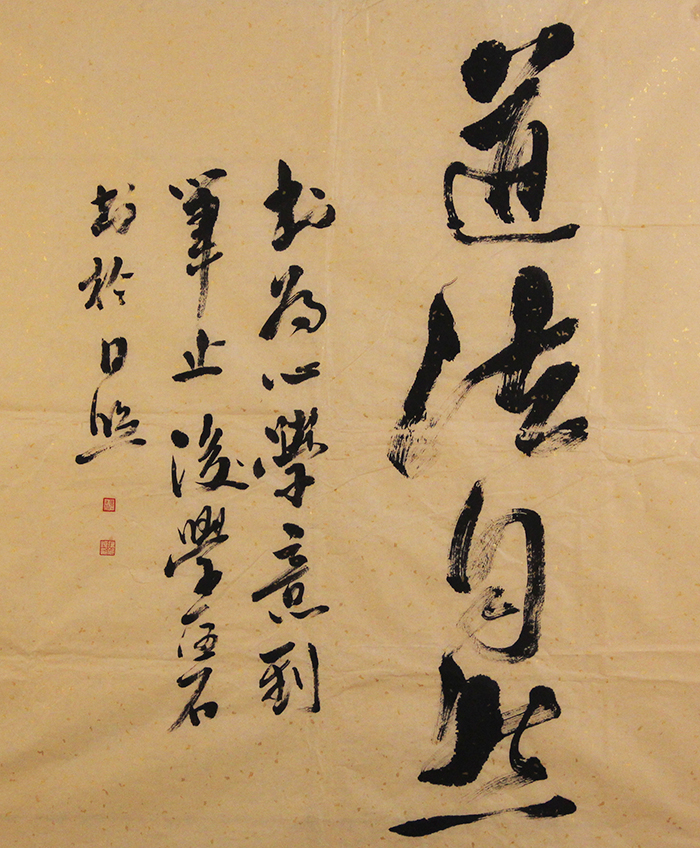 道法自然
書為心學意到
筆止後學石
書於日照